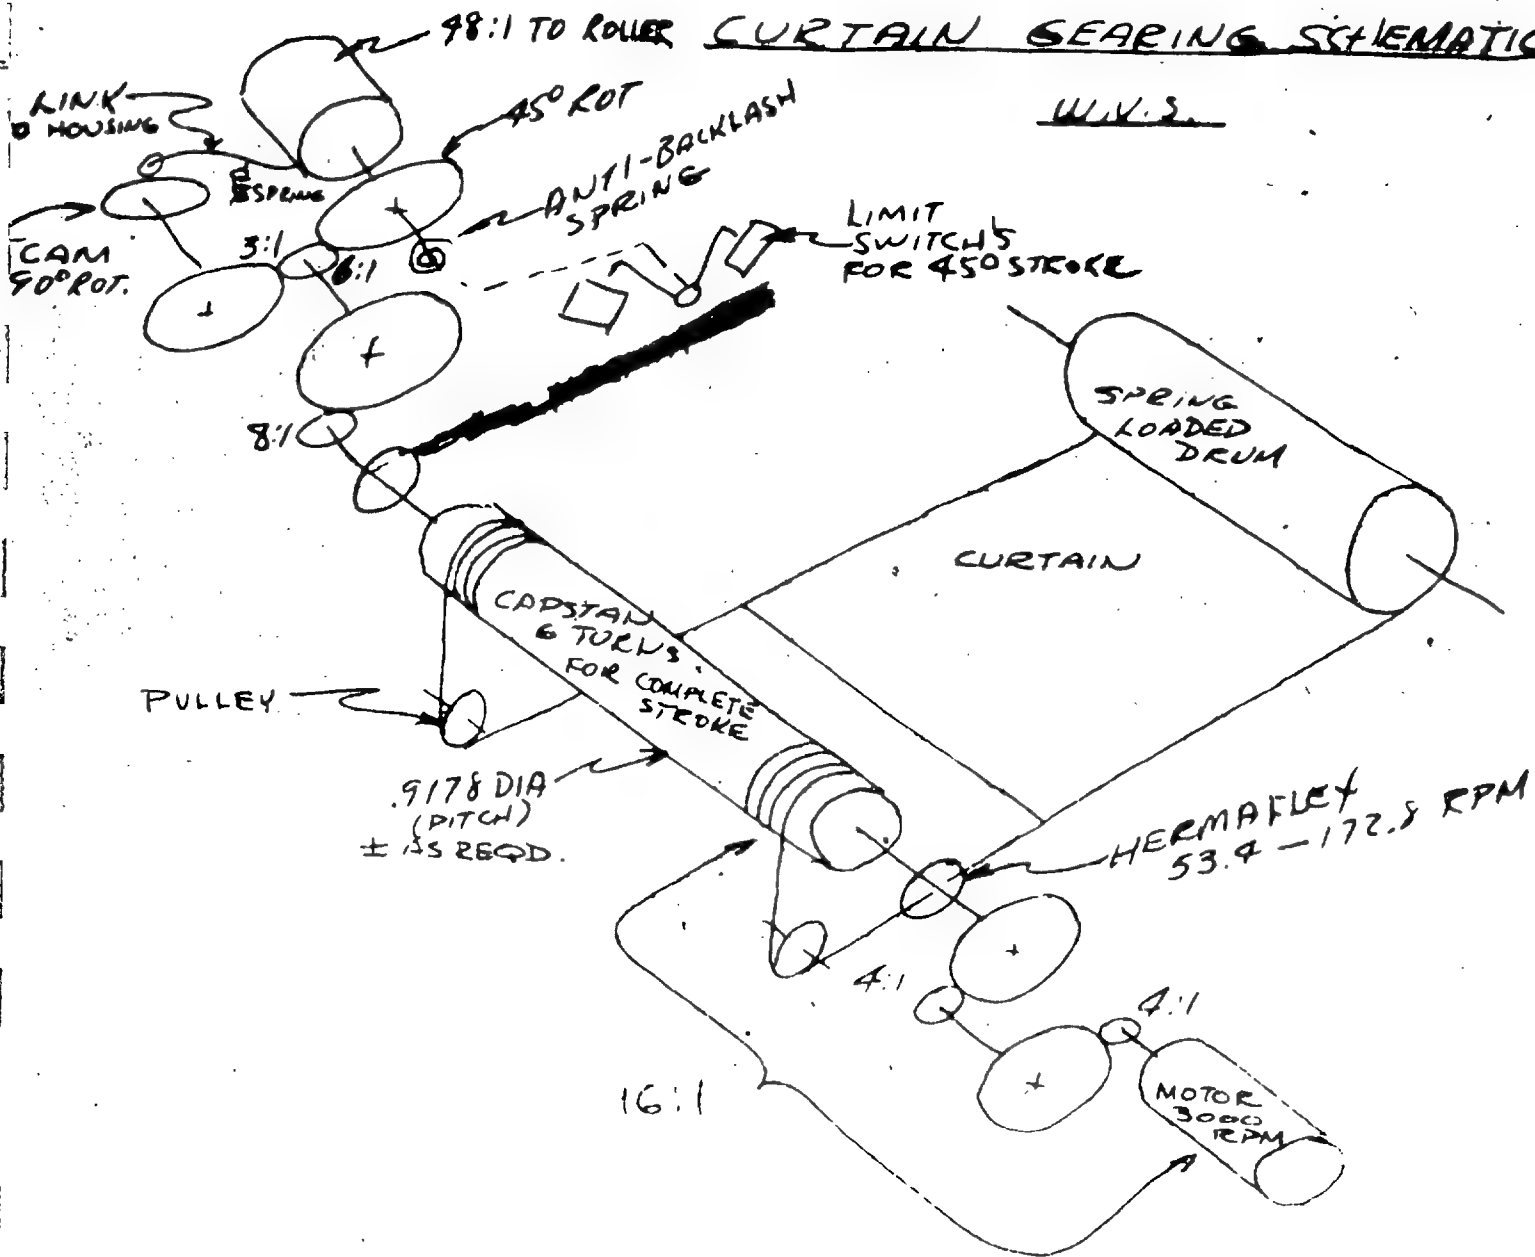 48:1 TO ROLLER
CURTAIN GEARING SCHEMATIC
W.V.S.
LINK
O HOUSING
SPRING
45° ROT
ANTI-BACKLASH
SPRING
LIMIT
SWITCH'S
FOR 45° STROKE
CAM
90° ROT.
3:1
6:1
8:1
SPRING
LOADED
DRUM
CURTAIN
CAPSTAN
6 TURNS
FOR COMPLETE
STROKE
PULLEY
.9178 DIA
(PITCH)
± AS REQD.
HERMAFLEX
53.4 - 172.8 RPM
4:1
4:1
16:1
MOTOR
3000
RPM